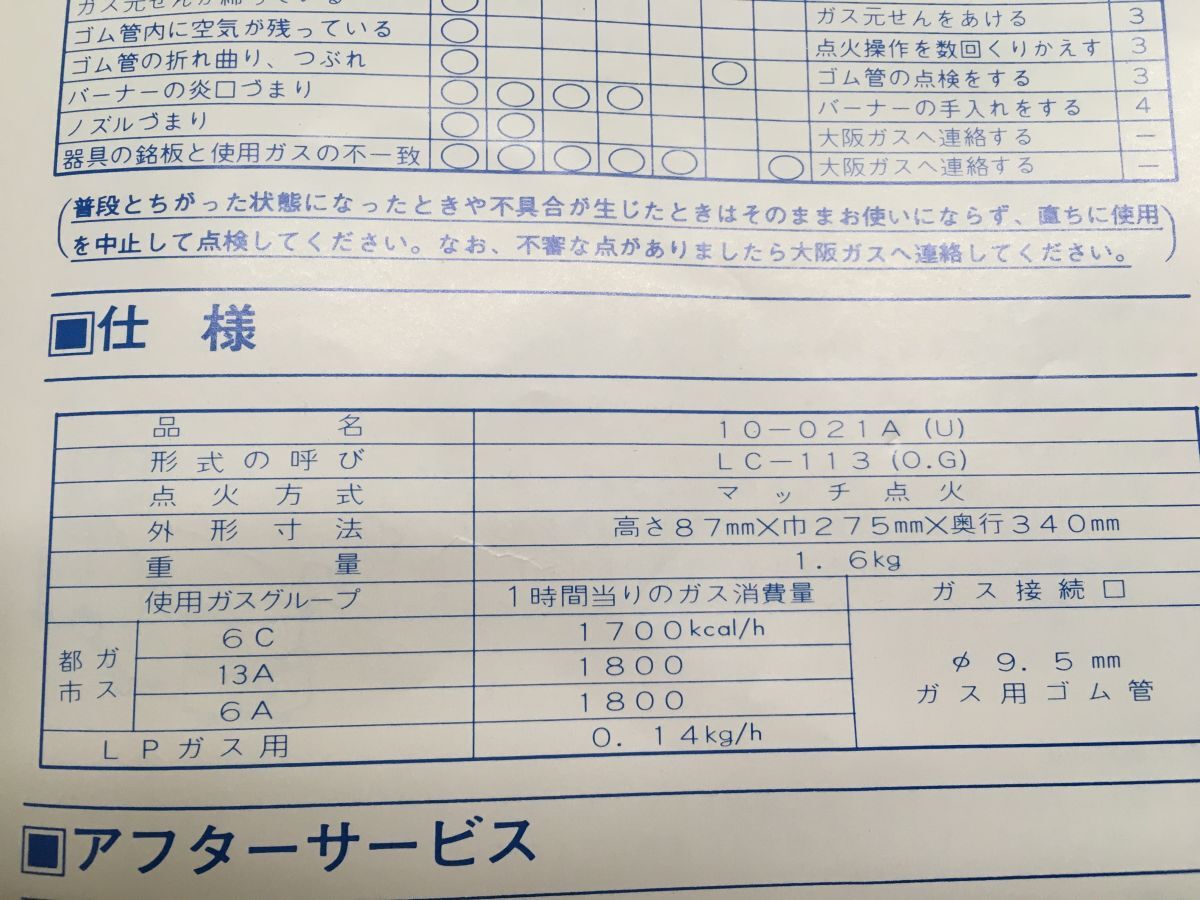 ガス元せんが締っている ○ ガス元せんをあける 3
ゴム管内に空気が残っている ○ 点火操作を数回くりかえす 3
ゴム管の折れ曲り、つぶれ ○ ○ ゴム管の点検をする 3
バーナーの炎口づまり ○ ○ ○ ○ バーナーの手入れをする 4
ノズルづまり ○ ○ 大阪ガスへ連絡する ー
器具の銘板と使用ガスの不一致 ○ ○ ○ ○ ○ ○ 大阪ガスへ連絡する ー
(普段とちがった状態になったときや不具合が生じたときはそのままお使いにならず、直ちに使用
を中止して点検してください。なお、不審な点がありましたら大阪ガスへ連絡してください。)
■仕 様
品名 10-021A (U)
形式の呼び LC-113 (O.G)
点火方式 マッチ点火
外形寸法 高さ87mm×巾275mm×奥行340mm
重量 1.6kg
使用ガスグループ 1時間当りのガス消費量 ガス接続口
都市ガス 6C 1700kcal/h
13A 1800
6A 1800
φ9.5mm
ガス用ゴム管
LPガス用 0.14kg/h
■アフターサービス